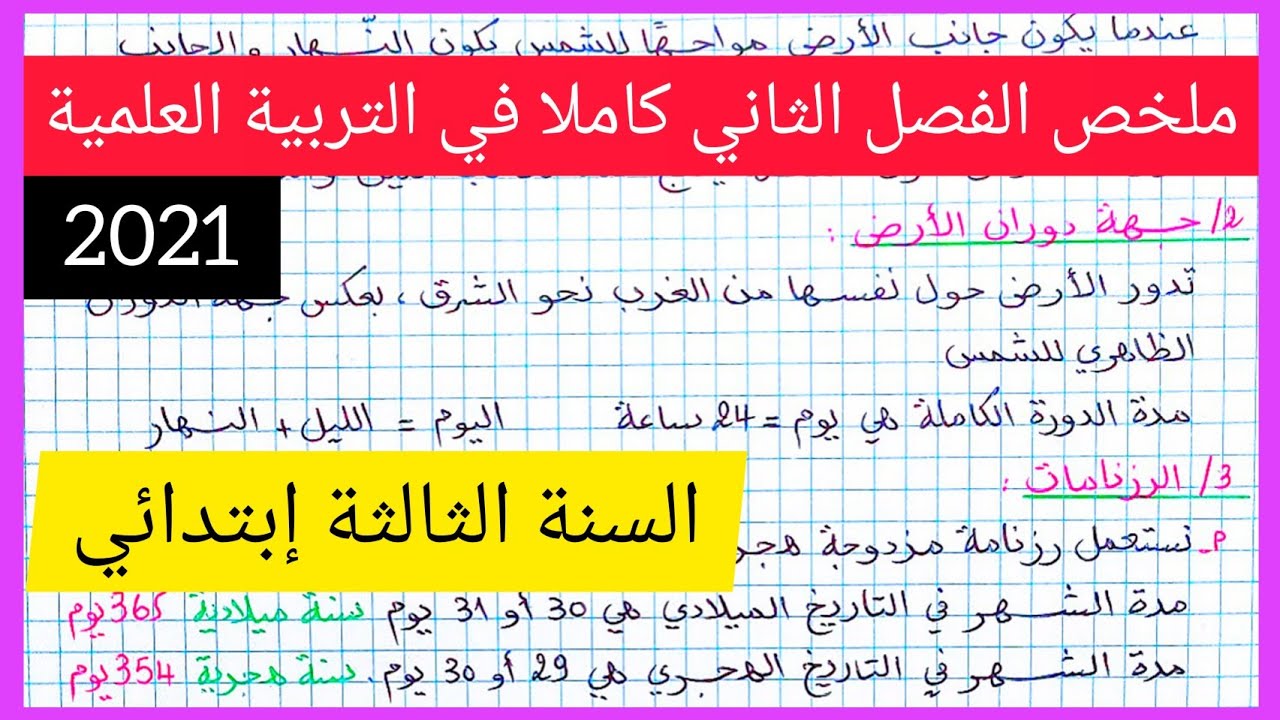 عندما يكون جانب الأرض مواجهًا للشمس يكون النّهار والجانب
ملخص الفصل الثاني كاملا في التربية العلمية
2021
2/ جهة دوران الأرض :
تدور الأرض حول نفسها من الغرب نحو الشرق ، بعكس جهة الدوران
الظاهري للشمس
مدة الدورة الكاملة هي يوم = 24 ساعة اليوم = الليل + النهار
3/ الرزنامات :
السنة الثالثة إبتدائي
نستعمل رزنامة مزدوجة
مدة الشهر في التاريخ الميلادي هي 30 أو 31 يوم سنة ميلادية 365 يوم
مدة الشهر في التاريخ الهجري هي 29 أو 30 يوم. سنة هجرية 354 يوم